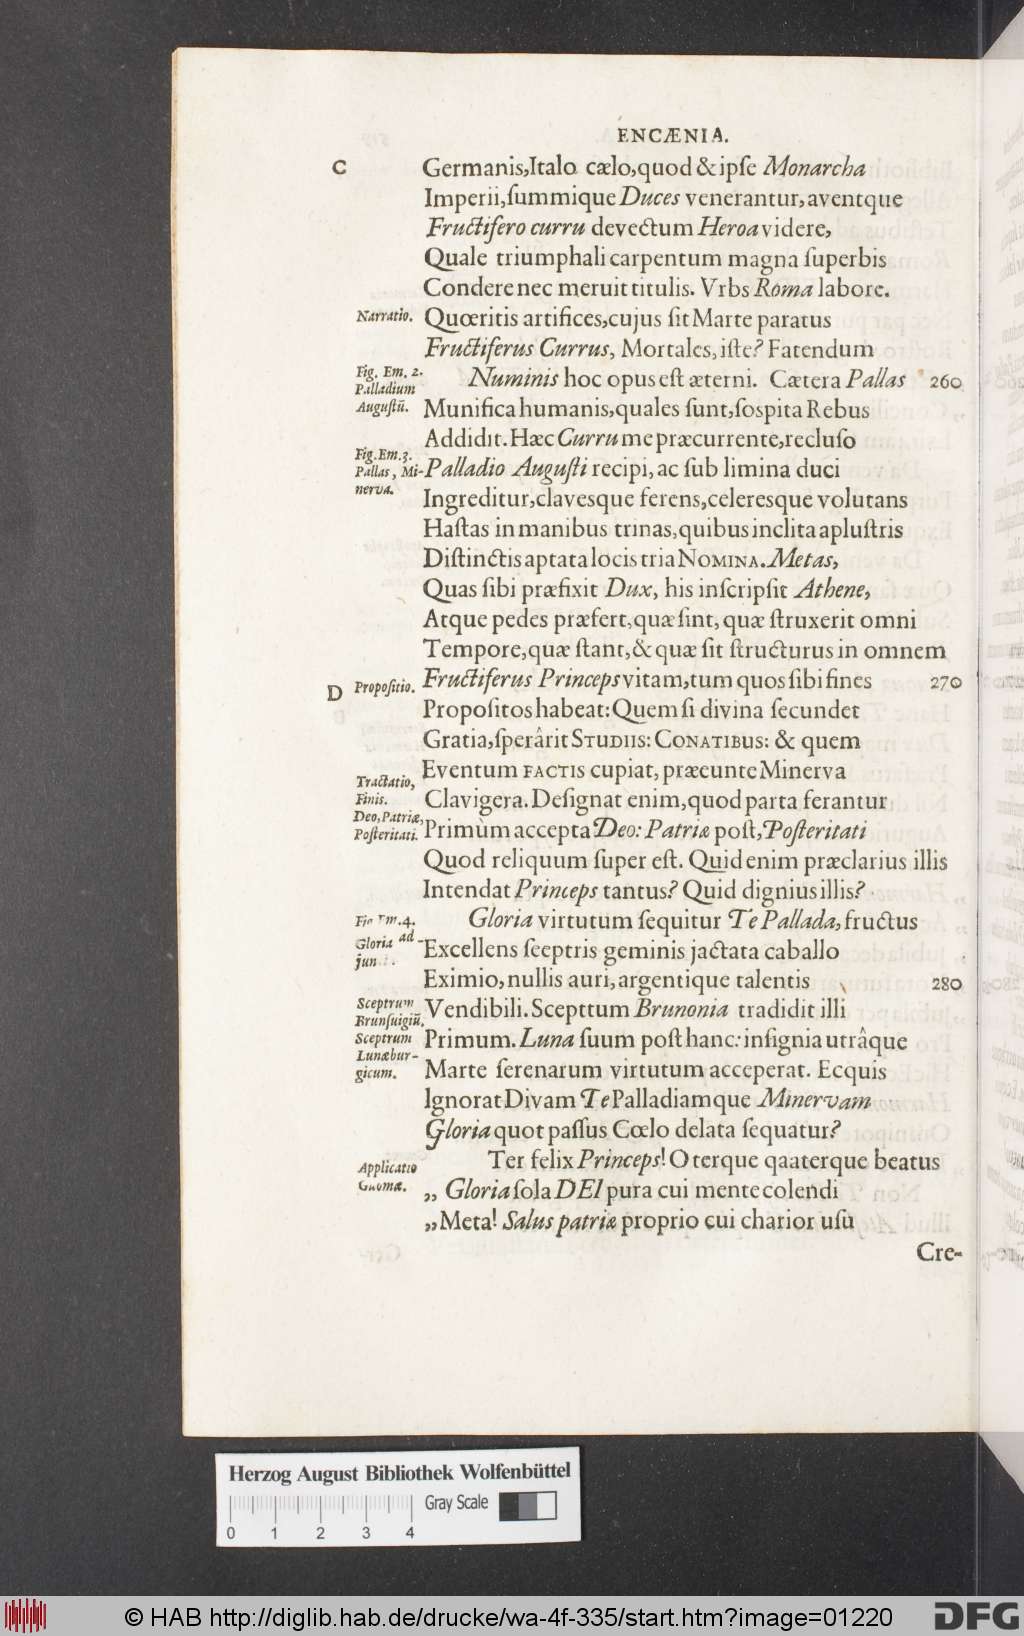 ENCÆNIA.
C
Germanis,Italo cælo,quod & ipſe Monarcha
Imperii,ſummique Duces venerantur,aventque
Fructifero curru devectum Heroa videre,
Quale triumphali carpentum magna ſuperbis
Condere nec meruit titulis. Vrbs Roma labore.
Narratio. Quœritis artifices,cujus ſit Marte paratus
Fructiferus Currus, Mortales, iſte? Fatendum
Fig. Em. 2. Numinis hoc opus eſt æterni. Cætera Pallas 260
Palladium
Auguſtũ. Munifica humanis,quales ſunt,ſospita Rebus
Addidit. Hæc Curru me præcurrente,recluſo
Fig. Em. 3.
Pallas, Mi- Palladio Auguſti recipi, ac ſub limina duci
nerva. Ingreditur,clavesque ferens,celeresque volutans
Haſtas in manibus trinas,quibus inclita apluſtris
Diſtinctis aptata locis tria NOMINA. Metas,
Quas ſibi præfixit Dux, his inſcripſit Athene,
Atque pedes præfert,quæ ſint, quæ ſtruxerit omni
Tempore,quæ ſtant,& quæ ſit ſtructurus in omnem
D Propoſitio. Fructiferus Princeps vitam,tum quos ſibi fines 270
Propoſitos habeat: Quem ſi divina ſecundet
Gratia,ſperârit STUDIIS: CONATIBUS: & quem
Eventum FACTIS cupiat, præeunte Minerva
Tractatio,
Finis. Clavigera. Deſignat enim,quod parta ferantur
Deo, Patriæ,
Poſteritati. Primùm accepta Deo: Patriæ poſt, Poſteritati
Quod reliquum ſuper eſt. Quid enim præclarius illis
Intendat Princeps tantus? Quid dignius illis?
Em. 4. Gloria virtutum ſequitur Te Pallada, fructus
Gloria ad Excellens ſceptris geminis jactata caballo
jun
Eximio, nullis auri, argentique talentis 280
Sceptrum Vendibili. Scepttum Brunonia tradidit illi
Brunſuigiũ.
Sceptrum Primum. Luna ſuum poſt hanc: inſignia utrâque
Lunæbur-
gicum. Marte ſerenarum virtutum acceperat. Ecquis
Ignorat Divam Te Palladiamque Minervam
Gloria quot paſſus Cœlo delata ſequatur?
Applicatio Ter felix Princeps! O terque qaaterque beatus
Gnomæ. „ Gloria ſola DEI pura cui mente colendi
„ Meta! Salus patriæ proprio cui charior uſu
Cre-
Herzog August Bibliothek Wolfenbüttel
Gray Scale
0 1 2 3 4
© HAB http://diglib.hab.de/drucke/wa-4f-335/start.htm?image=01220
DFG